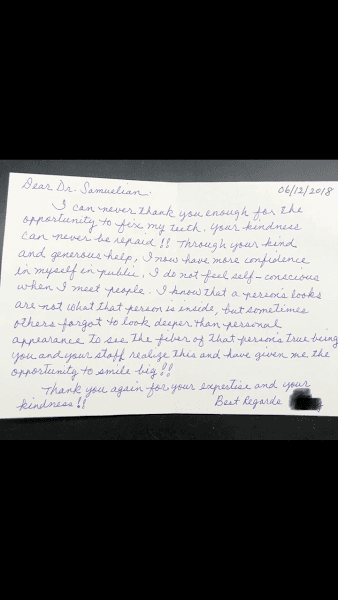 Dear Dr. Samuelian. 06/12/2018
I can never thank you enough for the
opportunity to fix my teeth, your kindness
can never be repaid!! Through your kind
and generous help, I now have more confidence
in myself in public, I do not feel self-conscious
when I meet people. I know that a person's looks
are not what that person is inside, but sometimes
others forgot to look deeper than personal
appearance to see the fiber of that person's true being
you and your staff realize this and have given me the
opportunity to smile big!!
Thank you again for your expertise and your
kindness!! Best Regards